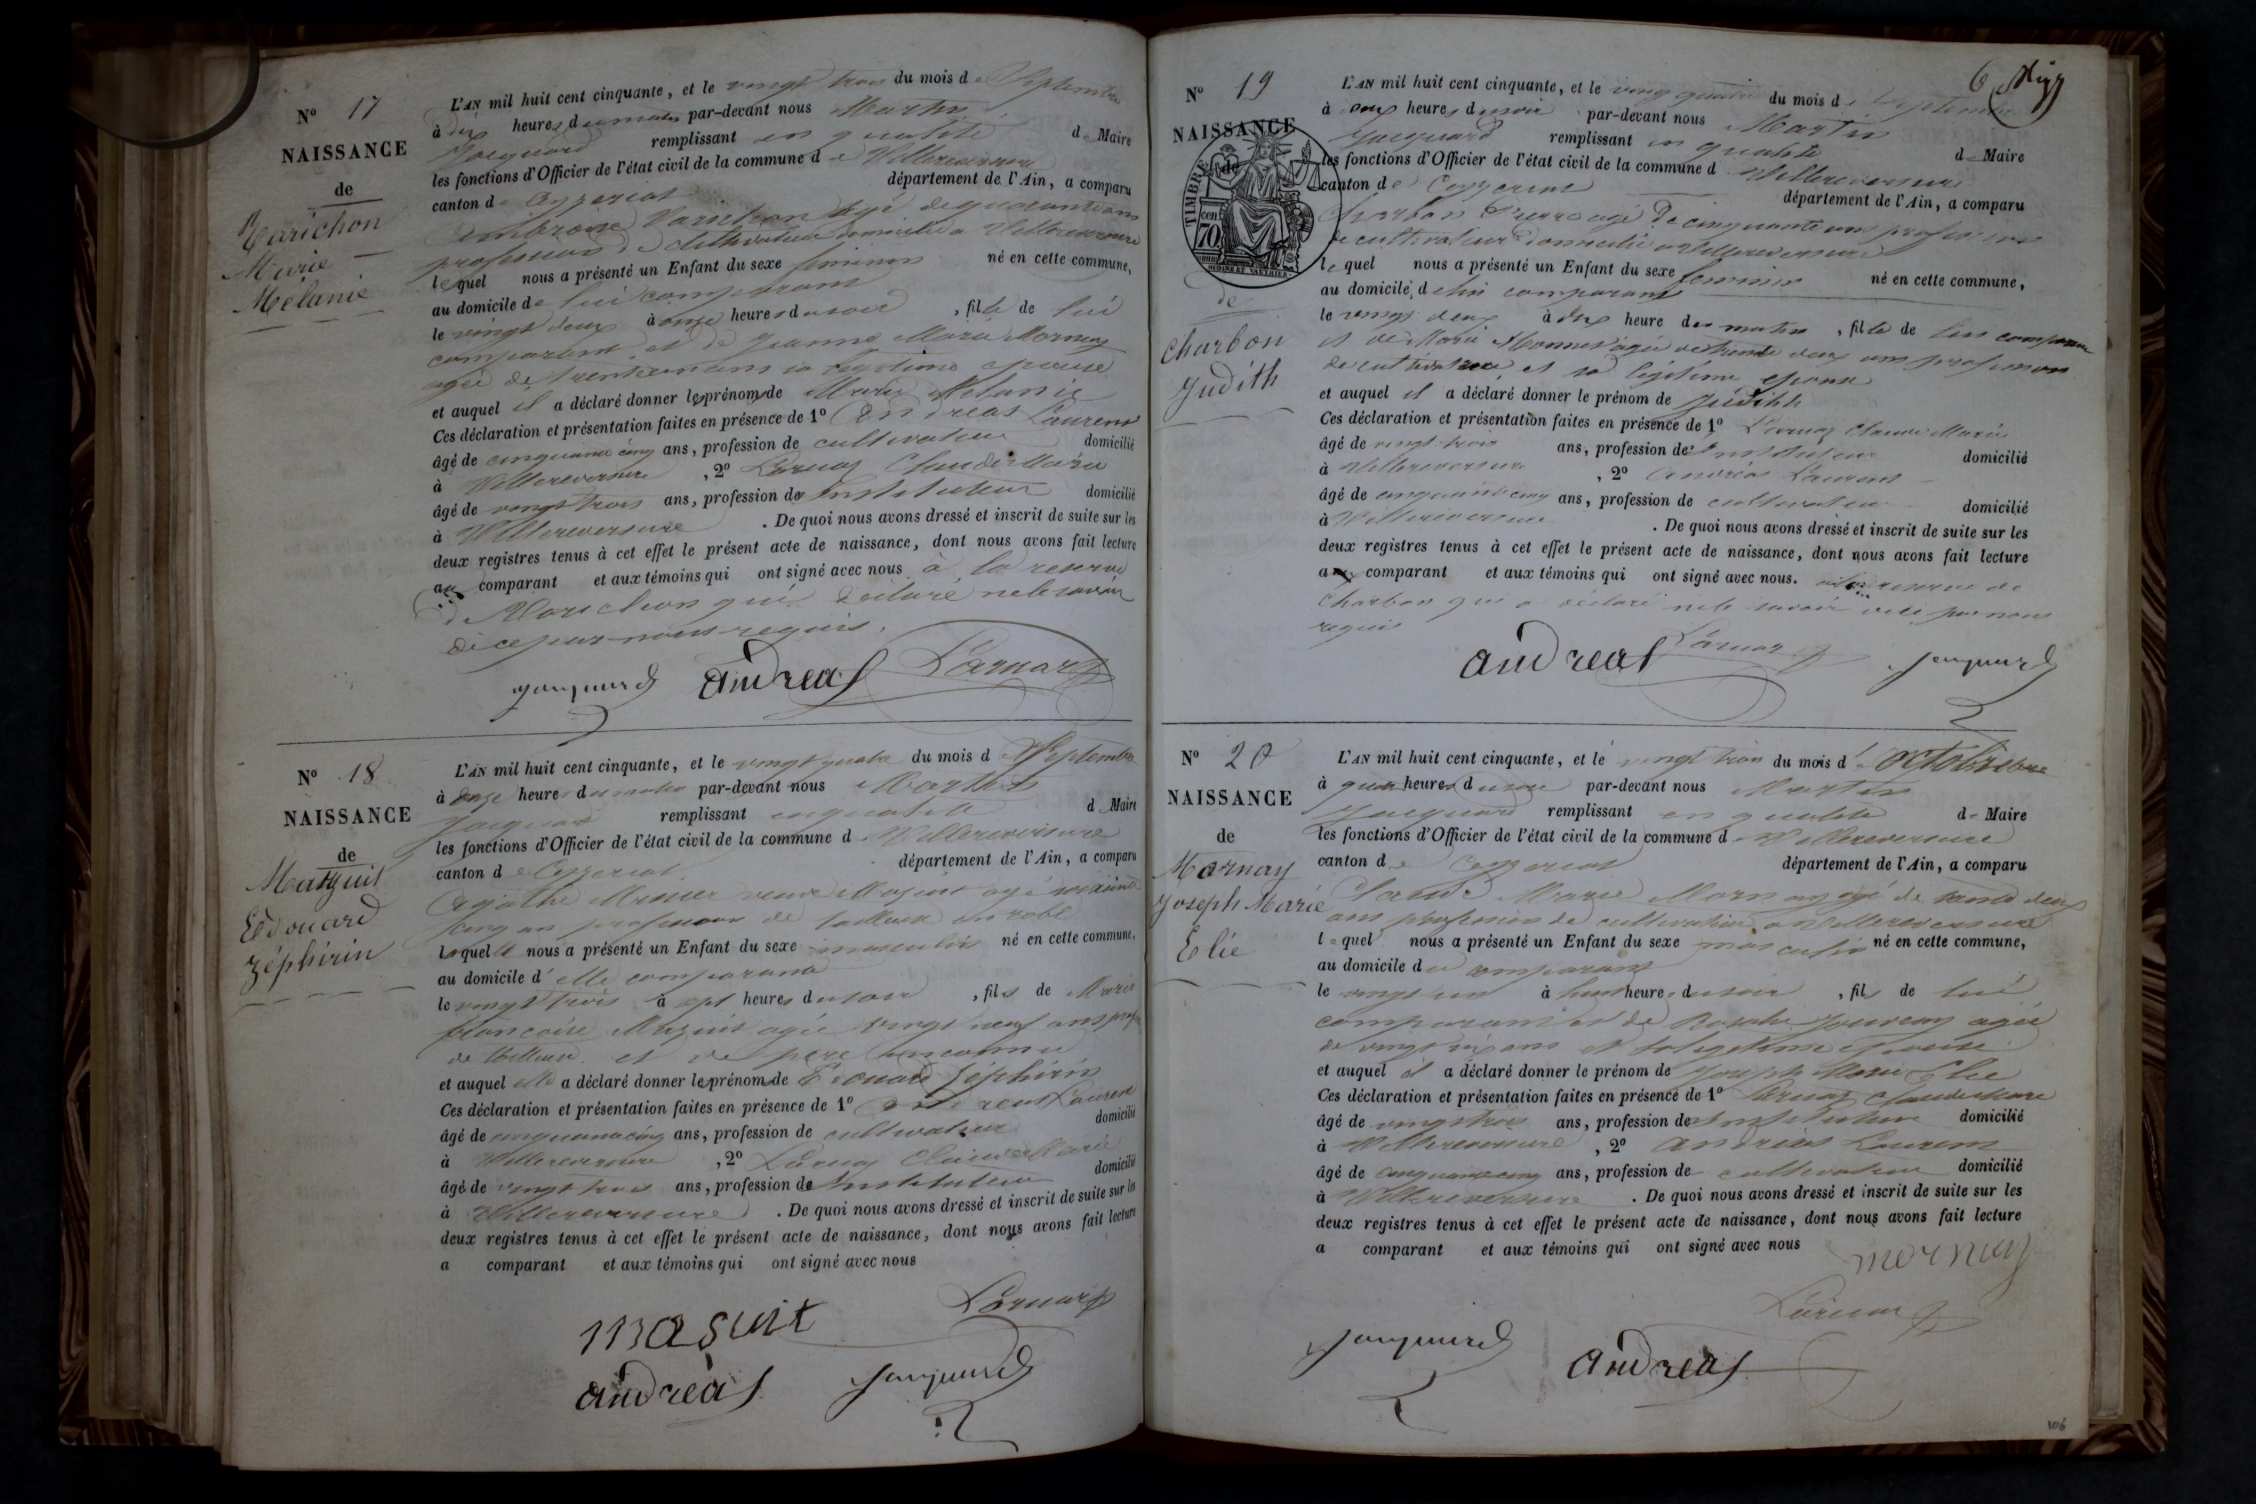 N° 17
NAISSANCE
de
Marichon
Marie
Mélanie
L'AN mil huit cent cinquante, et le vingt trois du mois de Septembre
à dix heures du matin par-devant nous Martin
Jacquard remplissant en qualité de Maire
les fonctions d'Officier de l'état civil de la commune de Villereversure
canton de Ceyzeriat département de l'Ain, a comparu
Ambroise Marichon âgé de quarante ans
profession de cultivateur domicilié à Villereversure
lequel nous a présenté un Enfant du sexe féminin né en cette commune,
au domicile de lui comparant
le vingt deux à onze heures du soir, fille de lui
comparant et de Jeanne Marie Mornay
agée de trente ans sa légitime épouse
et auquel il a déclaré donner les prénoms de Marie Mélanie
Ces déclaration et présentation faites en présence de 1° Andréas Laurent
âgé de cinquante cinq ans, profession de cultivateur domicilié
à Villereversure, 2° Larnay Claude Marie
âgé de vingt trois ans, profession de Instituteur domicilié
à Villereversure. De quoi nous avons dressé et inscrit de suite sur les
deux registres tenus à cet effet le présent acte de naissance, dont nous avons fait lecture
au comparant et aux témoins qui ont signé avec nous à la reserve
de Marichon qui a déclaré ne le savoir
de ce par nous requis.
Jacquard Andreas Larnay
N° 18
NAISSANCE
de
Mazuit
Edouard
Zéphirin
L'AN mil huit cent cinquante, et le vingt quatre du mois de Septembre
à onze heures du matin par-devant nous Martin
Jacquard remplissant en qualité de Maire
les fonctions d'Officier de l'état civil de la commune de Villereversure
canton de Ceyzeriat département de l'Ain, a comparu
Agathe veuve Mazuit agé soixante
cinq ans profession de tailleuse en robe
Laquelle nous a présenté un Enfant du sexe masculin né en cette commune,
au domicile d'elle comparant
le vingt trois à sept heures du soir, fils de Marie
françoise Mazuit agée vingt neuf ans prof
de tailleuse et de père inconnu
et auquel elle a déclaré donner les prénoms de Edouard Zéphirin
Ces déclaration et présentation faites en présence de 1° Andreas Laurent
âgé de cinquante cinq ans, profession de cultivateur domicilié
à Villereversure, 2° Larnay Claude Marie
âgé de vingt trois ans, profession de Instituteur domicilié
à Villereversure. De quoi nous avons dressé et inscrit de suite sur les
deux registres tenus à cet effet le présent acte de naissance, dont nous avons fait lecture
a comparant et aux témoins qui ont signé avec nous
Larnay
masuit
Andreas Jacquard
6
N° 19
NAISSANCE
de
TIMBRE
cent 70
de
Charbon
Judith
L'AN mil huit cent cinquante, et le vingt quatre du mois de Septembre
à heures du soir par-devant nous Martin
Jacquard remplissant en qualité de Maire
les fonctions d'Officier de l'état civil de la commune de Villereversure
canton de Ceyzeriat département de l'Ain, a comparu
Charbon Pierre agé de cinquante ans profession
de cultivateur domicilié à Villereversure
lequel nous a présenté un Enfant du sexe féminin né en cette commune,
au domicile de lui comparant
le vingt deux à dix heure du matin, fille de lui comparant
et de Marie agée de trente deux ans profession
de cultivatrice et sa légitime épouse
et auquel il a déclaré donner le prénom de Judith
Ces déclaration et présentation faites en présence de 1° Larnay Claude Marie
âgé de vingt trois ans, profession de Instituteur domicilié
à Villereversure, 2° Andréas Laurent
âgé de cinquante cinq ans, profession de cultivateur domicilié
à Villereversure. De quoi nous avons dressé et inscrit de suite sur les
deux registres tenus à cet effet le présent acte de naissance, dont nous avons fait lecture
au comparant et aux témoins qui ont signé avec nous. à la reserve de
Charbon qui a déclaré ne le savoir de ce par nous
requis
Andreas Larnay Jacquard
N° 20
NAISSANCE
de
Mornay
Joseph Marie
Elie
L'AN mil huit cent cinquante, et le vingt trois du mois d'octobre
à quatre heures du soir par-devant nous Martin
Jacquard remplissant en qualité de Maire
les fonctions d'Officier de l'état civil de la commune de Villereversure
canton de Ceyzeriat département de l'Ain, a comparu
Claude Marie Mornay agé de trente deux
ans profession de cultivateur à Villereversure
lequel nous a présenté un Enfant du sexe masculin né en cette commune,
au domicile du comparant
le vingt un à huit heures du soir, fils de lui
comparant et de Rosalie agée
de vingt six ans et sa légitime épouse
et auquel il a déclaré donner le prénom de Joseph Marie Elie
Ces déclaration et présentation faites en présence de 1° Larnay Claude Marie
âgé de vingt trois ans, profession de Instituteur domicilié
à Villereversure, 2° Andréas Laurent
âgé de cinquante cinq ans, profession de cultivateur domicilié
à Villereversure. De quoi nous avons dressé et inscrit de suite sur les
deux registres tenus à cet effet le présent acte de naissance, dont nous avons fait lecture
a comparant et aux témoins qui ont signé avec nous
mornay
Larnay
Jacquard Andreas
106